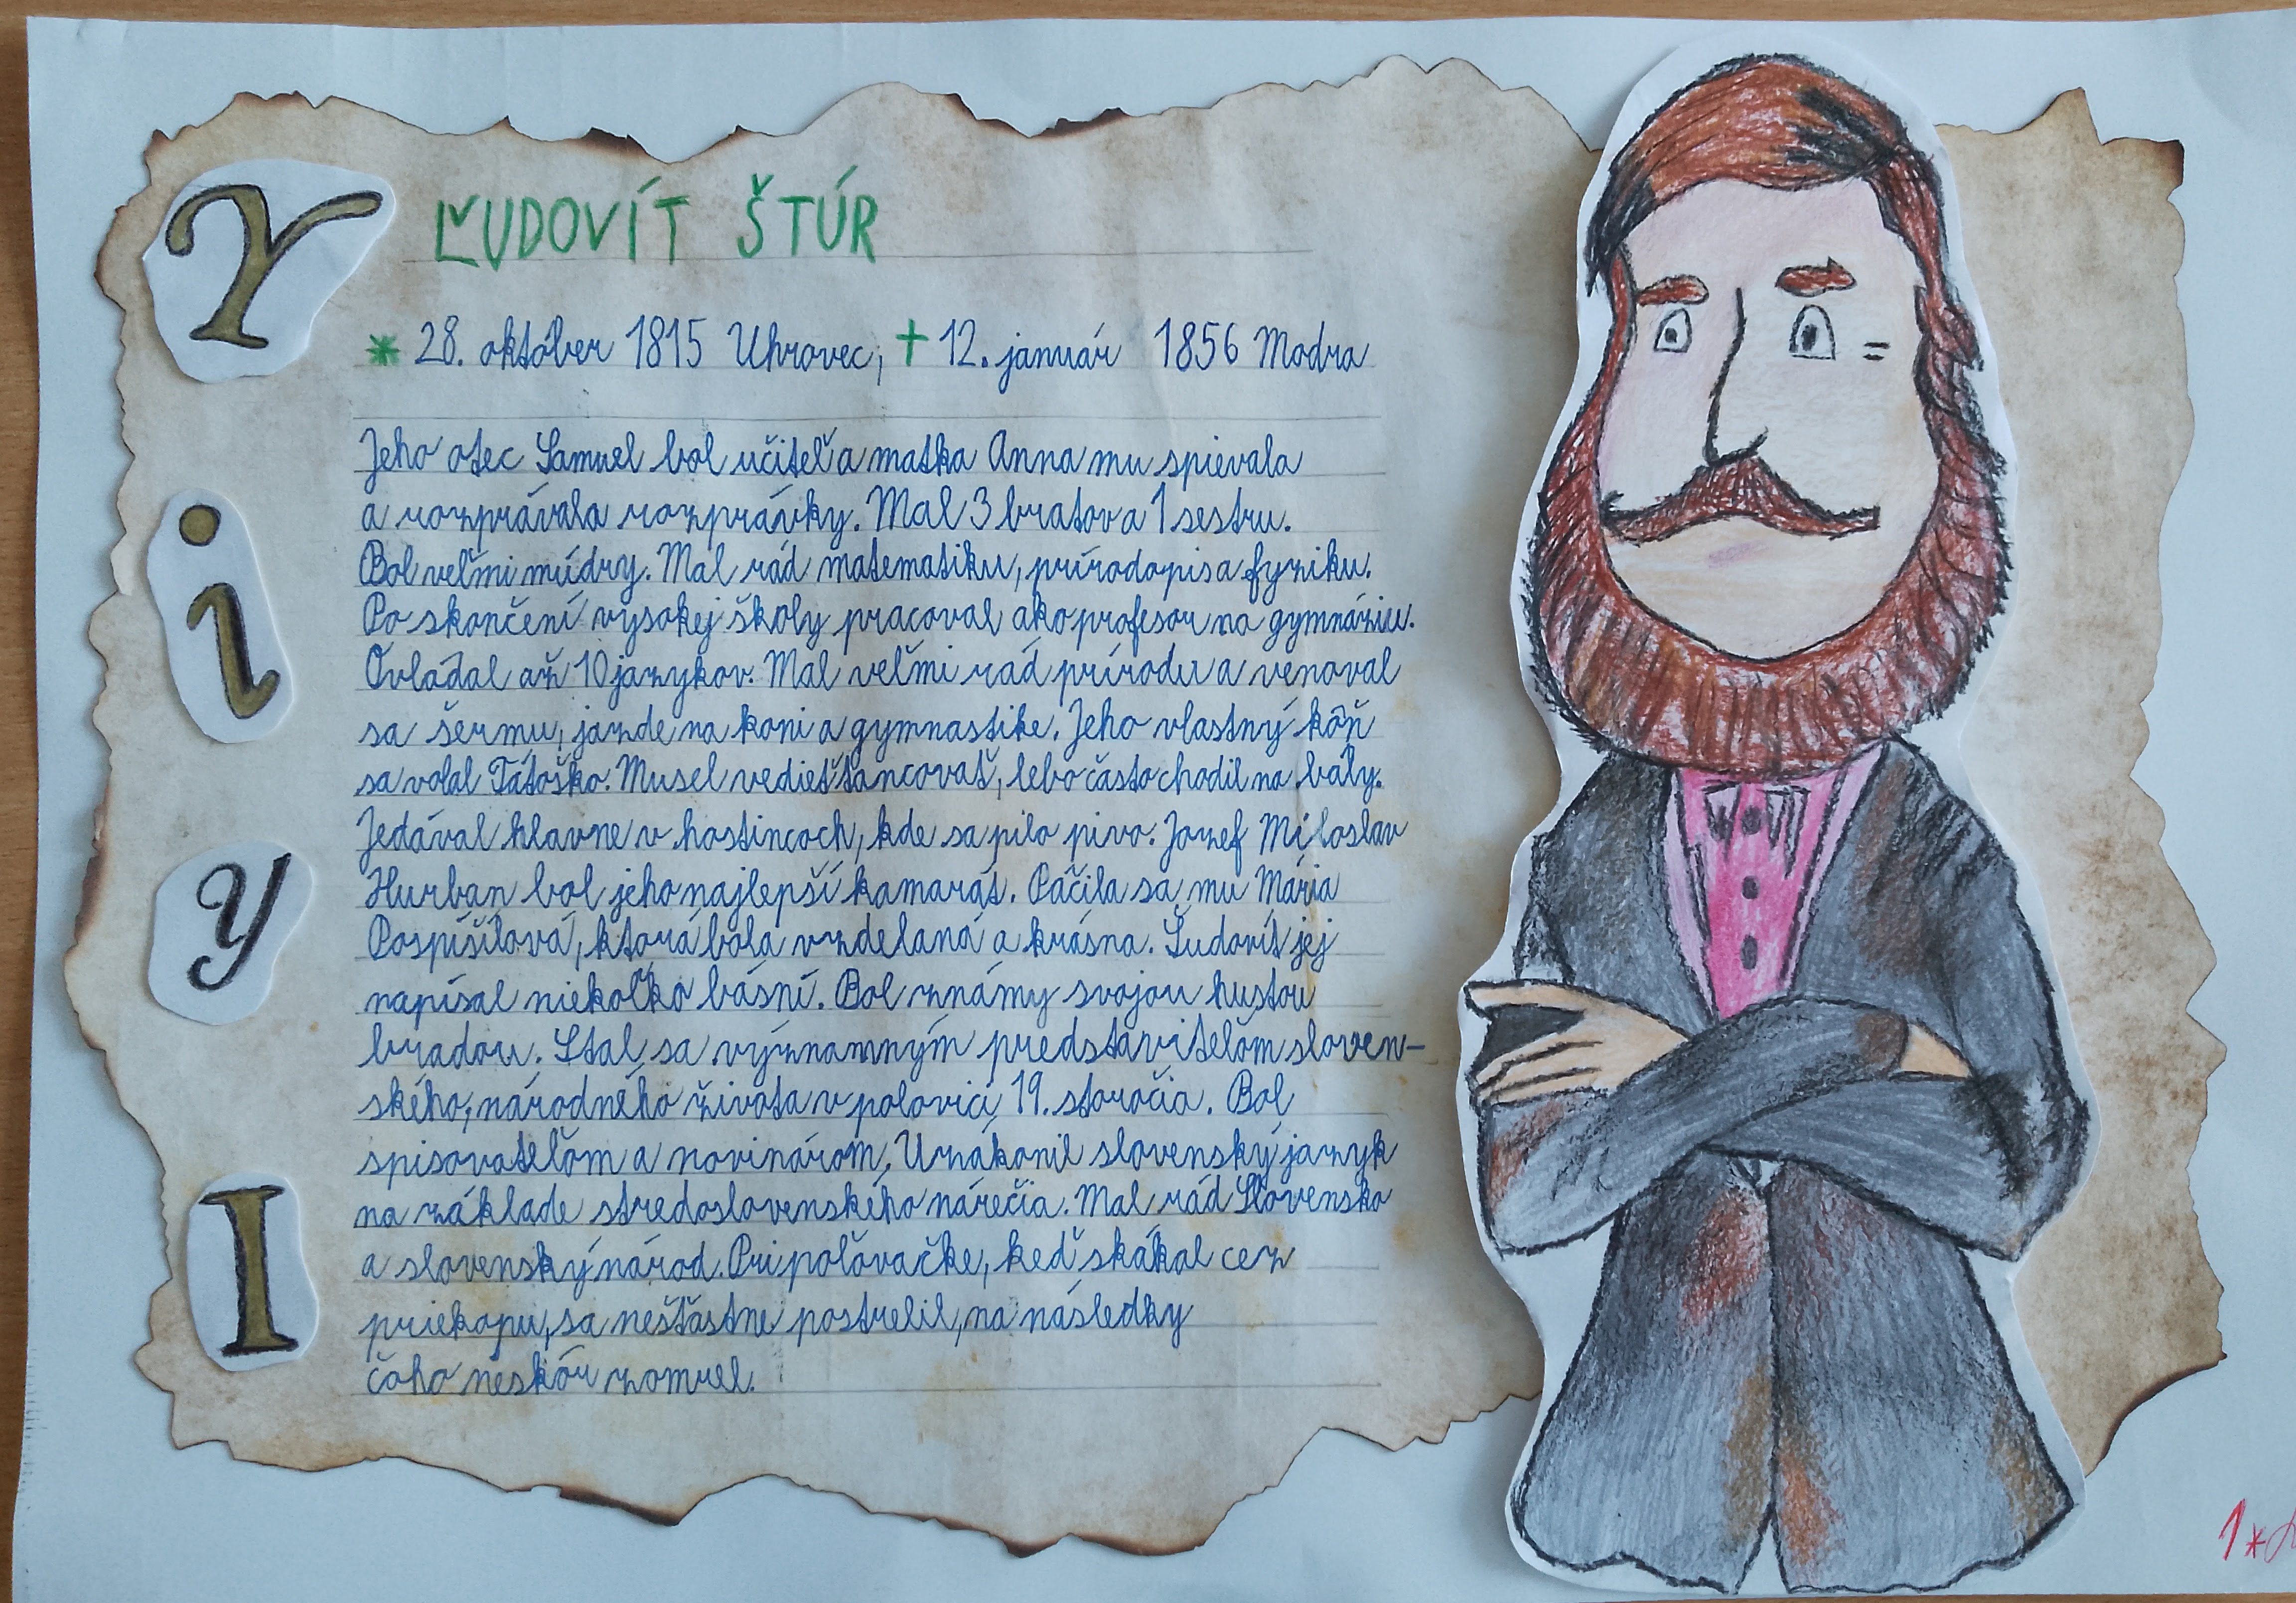 Y
i
y
I
ĽUDOVÍT ŠTÚR
* 28. október 1815 Uhrovec, † 12. január 1856 Modra
Jeho otec Samuel bol učiteľ a matka Anna mu spievala
a rozprávala rozprávky. Mal 3 bratov a 1 sestru.
Bol veľmi múdry. Mal rád matematiku, prírodopis a fyziku.
Po skončení vysokej školy pracoval ako profesor na gymnáziu.
Ovládal až 10 jazykov. Mal veľmi rád prírodu a venoval
sa šermu, jazde na koni a gymnastike. Jeho vlastný kôň
sa volal Tátoško. Musel vedieť tancovať, lebo často chodil na bály.
Jedával hlavne v hostincoch, kde sa pilo pivo. Jozef Miloslav
Hurban bol jeho najlepší kamarát. Páčila sa mu Mária
Pospíšilová, ktorá bola vzdelaná a krásna. Ľudovít jej
napísal niekoľko básní. Bol známy svojou hustou
bradou. Stal sa významným predstaviteľom sloven-
ského, národného života v polovici 19. storočia. Bol
spisovateľom a novinárom. Uzákonil slovenský jazyk
na základe stredoslovenského nárečia. Mal rád Slovensko
a slovenský národ. Pri poľovačke, keď skákal cez
priekopu, sa nešťastne postrelil, na následky
čoho neskôr zomrel.
1*